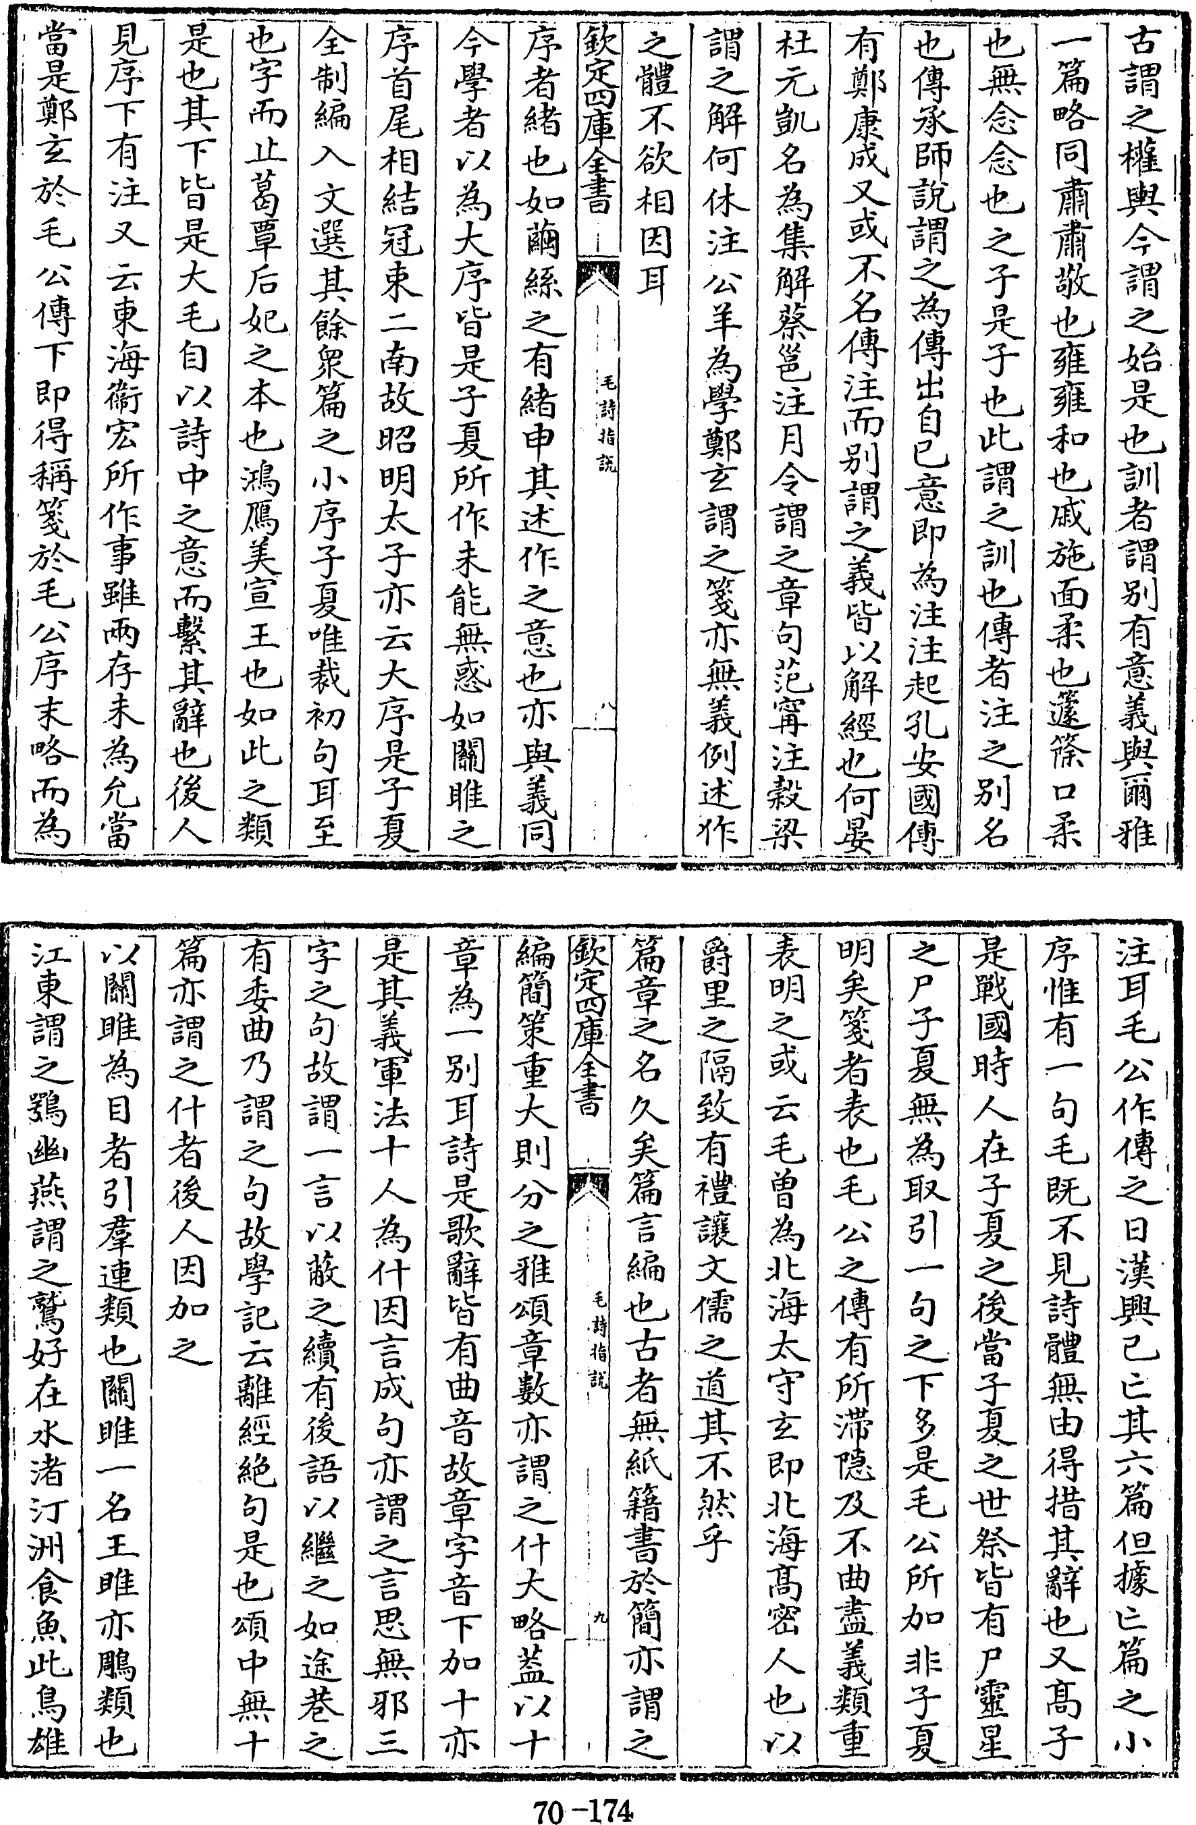 古謂之權輿今謂之始是也訓者謂别有意義與爾雅
一篇略同肅肅敬也雍雍和也戚施面柔也籧篨口柔
也無念念也之子是子也此謂之訓也傳者注之别名
也傳承師說謂之為傳出自已意即為注注起孔安國傳
有鄭康成又或不名傳注而别謂之義皆以解經也何晏
杜元凱名為集解蔡邕注月令謂之章句范甯注穀梁
謂之解何休注公羊為學鄭玄謂之箋亦無義例述作
之體不欲相因耳
欽定四庫全書 毛詩指說 八
序者緒也如繭絲之有緒申其述作之意也亦與義同
今學者以為大序皆是子夏所作未能無惑如關雎之
序首尾相結冠束二南故昭明太子亦云大序是子夏
全制編入文選其餘衆篇之小序子夏唯裁初句耳至
也字而止葛覃后妃之本也鴻鴈美宣王也如此之類
是也其下皆是大毛自以詩中之意而繫其辭也後人
見序下有注又云東海衛宏所作事雖兩存未為允當
當是鄭玄於毛公傳下即得稱箋於毛公序末略而為
注耳毛公作傳之日漢興已亡其六篇但據亡篇之小
序惟有一句毛既不見詩體無由得措其辭也又髙子
是戰國時人在子夏之後當子夏之世祭皆有尸靈星
之尸子夏無為取引一句之下多是毛公所加非子夏
明矣箋者表也毛公之傳有所滯隱及不曲盡義類重
表明之或云毛曾為北海太守玄即北海髙密人也以
爵里之隔致有禮讓文儒之道其不然乎
篇章之名久矣篇言編也古者無紙籍書於簡亦謂之
欽定四庫全書 毛詩指說 九
編簡策重大則分之雅頌章數亦謂之什大略葢以十
章為一别耳詩是歌辭皆有曲音故章字音下加十亦
是其義軍法十人為什因言成句亦謂之言思無邪三
字之句故謂一言以蔽之續有後語以繼之如途巷之
有委曲乃謂之句故學記云離經絶句是也頌中無十
篇亦謂之什者後人因加之
以關雎為目者引羣連類也關雎一名王雎亦鵰類也
江東謂之鶚幽燕謂之鷲好在水渚汀洲食魚此鳥雄
70-174